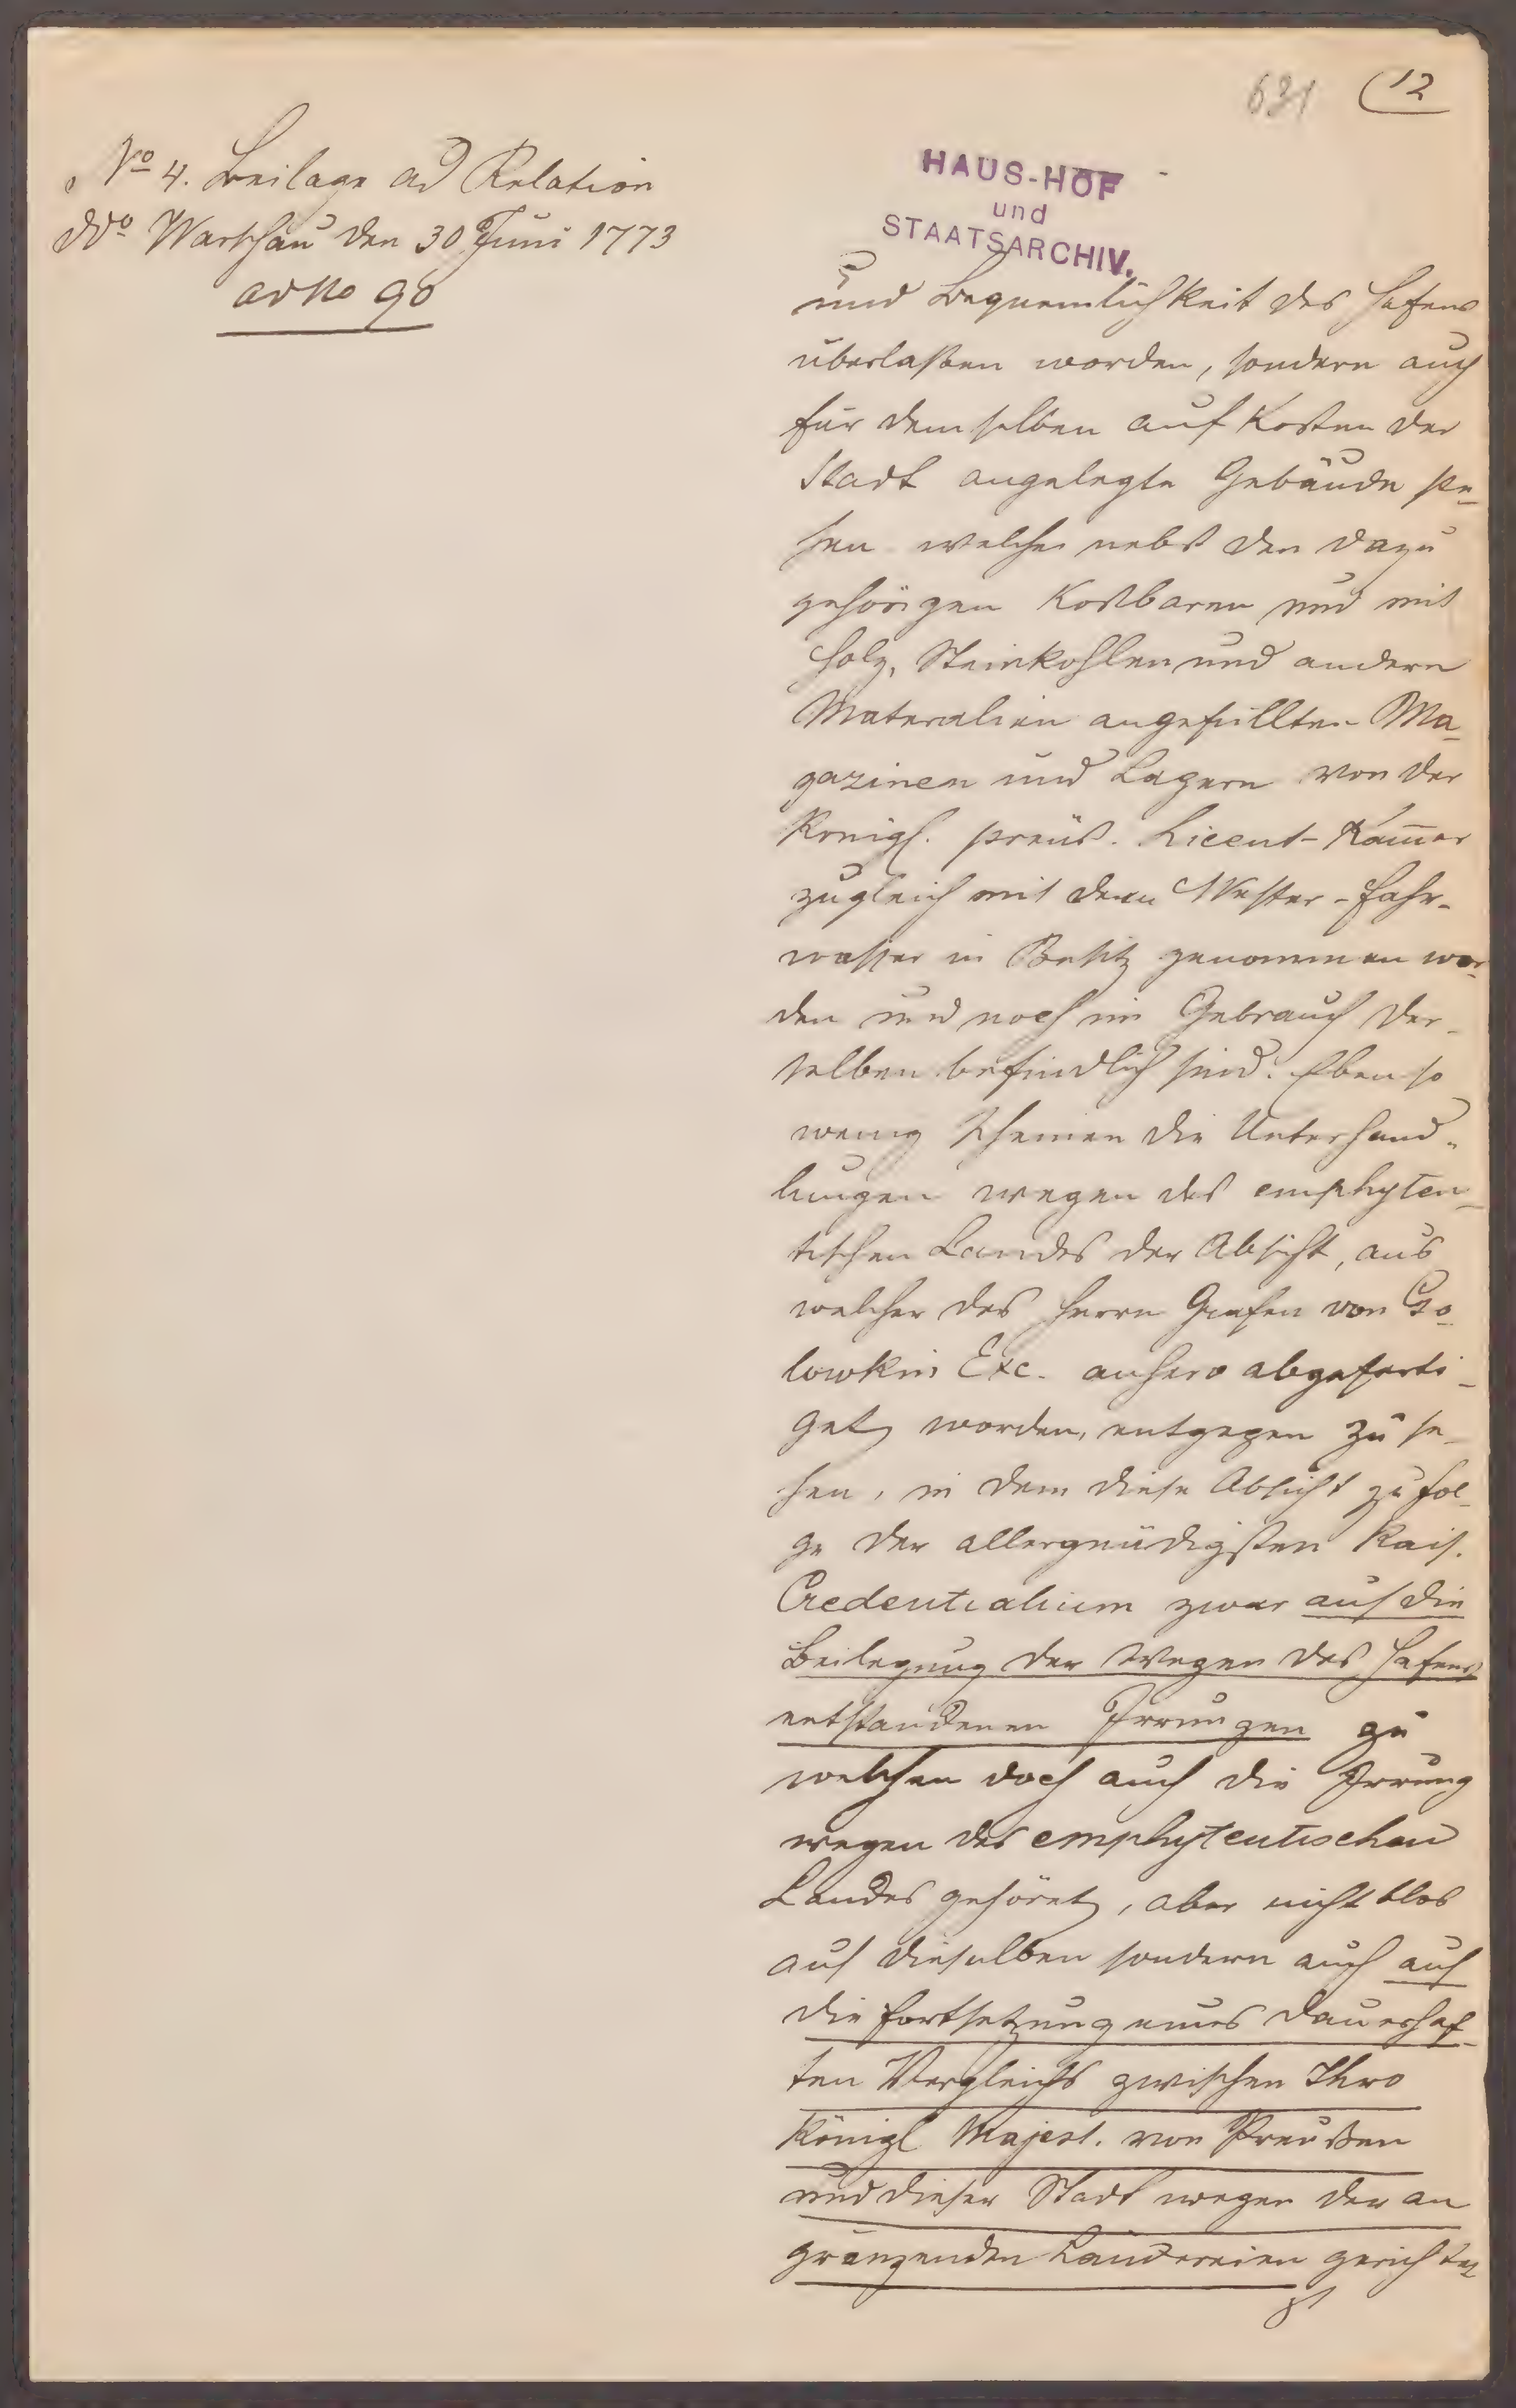 631 (12
No 4. Beilage ad Relation
ddo Warschau den 30 Juni 1773
ad No 90
HAUS-HOF
und
STAATSARCHIV.
und Bequemlichkeit des Hafens
überlaßen worden, sondern auch
für demselben auf Kosten der
Stadt angelegte Gebäude ste-
hen welche nebst den dazu
gehörigen Kostbaren und mit
Holz, Steinkohlen und andern
Materialien angefüllten Ma-
gazinen und Lagern von der
Königl. preuß. Licent-Kam̅er
zugleich mit dem Wester-Fahr-
wasser in Besitz genommen wor-
den und noch im Gebrauch der-
selben befindlich sind. Eben so
wenig scheinen die Unterhand-
lungen wegen des emphyteu-
tischen Landes der Absicht, aus
welcher des Herrn Grafen von Go-
lowkin Exc. anhero abgeferti-
get worden, entgegen zu se-
hen, in dem diese Absicht zu fol-
ge der allergnädigsten Kais.
Credentialium zwar auf die
Beilegung der wegen des Hafens
entstandenen Irrungen zu
welchen doch auch die Irrung
wegen des emphyteutischen
Landes gehöret, aber nicht blos
auf dieselben sondern auch auf
die Fortsetzung eines dauerhaf-
ten Vergleichs zwischen Ihro
Königl Majest. von Preußen
und dieser Stadt wegen der an
gränzenden Ländereien gerichtet
ist